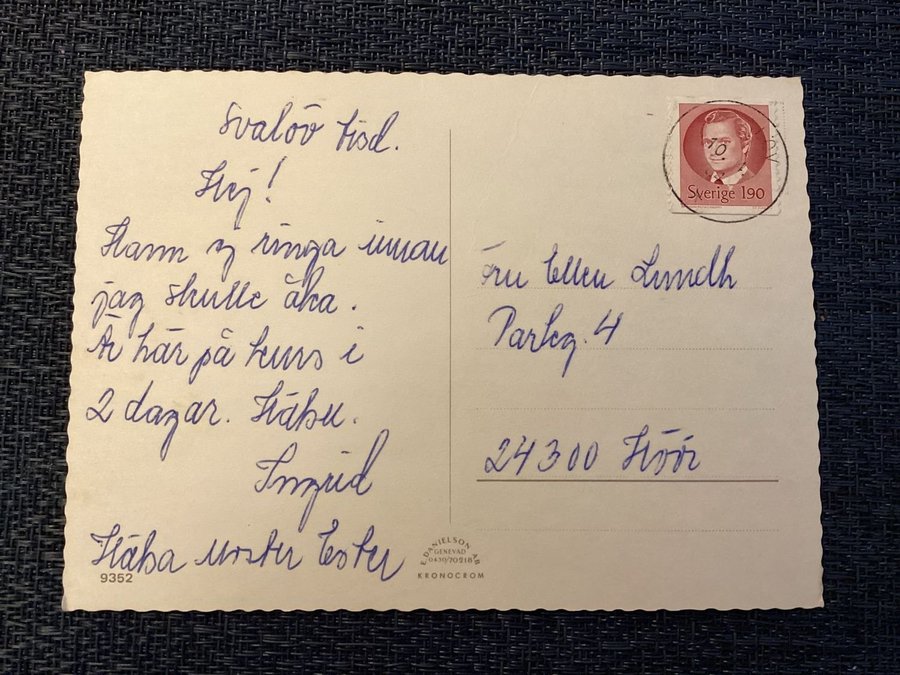 Svalöv tisd.
Hej!
Hann ej ringa innan
jag skulle åka.
Är här på kurs i
2 dagar. Hälsn.
Ingrid
Hälsa moster Ester
9352
E. DANIELSON AB
GENEVAD
0430/70218
KRONOCROM
Sverige 190
Fru Ellen Lundh
Parkg. 4
24300 Höör